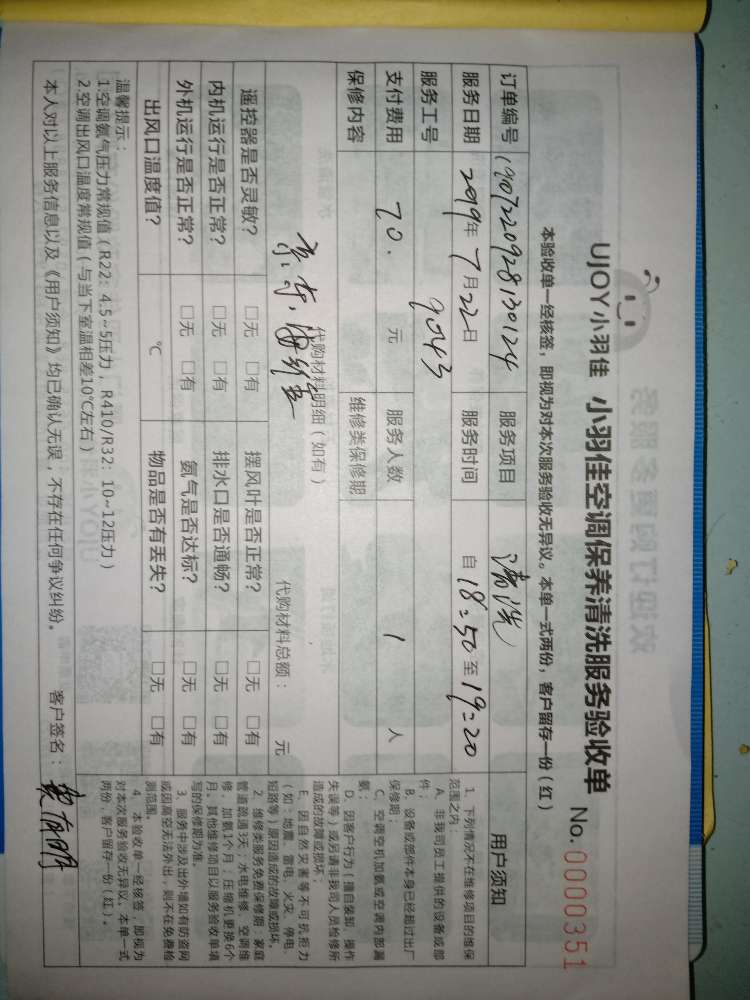 UJOY小羽佳 小羽佳空调保养清洗服务验收单 No. 0000351
本验收单一经核签，即视为对本次服务验收无异议。本单一式两份，客户留存一份（红）
订单编号 1907220928130124 服务项目 清洗
服务日期 2019年7月22日 服务时间 自18:50至19:20
服务工号 9043
支付费用 70. 元 服务人数 1 人
保修内容 维修类保修期
代购材料明细（如有） 代购材料总额： 元
遥控器是否灵敏？ □无 □有 摆风叶是否正常？ □无 □有
内机运行是否正常？ □无 □有 排水口是否通畅？ □无 □有
外机运行是否正常？ □无 □有 氨气是否达标？ □无 □有
出风口温度值？ ℃ 物品是否有丢失？ □无 □有
温馨提示：
1.空调氨气压力常规值（R22：4.5~5压力，R410/R32：10~12压力）
2.空调出风口温度常规值（与当下室温相差10℃左右）
本人对以上服务信息以及《用户须知》均已确认无误，不存在任何争议纠纷。 客户签名：
用户须知
1、下列情况不在维修项目的维保
范围之内：
A、非我司员工提供的设备或部
件；
B、设备或部件本身已经超过出厂
保修期；
C、空调空机加氨或空调内部漏
氨；
D、因客户行为（擅自装卸、操作
失误等）或另请非我司人员检修所
造成的故障或损坏；
E、因自然灾害等不可抗拒力
（如：地震、雷电、火灾、停电、
短路等）原因造成的故障或损坏。
2、维修类服务免费保修期：家庭
管道疏通3天；水电维修、空调维
修、加氨1个月；压缩机更换6个
月。其他维修项目以服务验收单填
写的保修期为准。
3、服务中涉及出外墙如有防盗网
或因高空无法外出，则不在免费检
测范围。
4、本验收单一经核签，即视为
对本次服务验收无异议。本单一式
两份，客户留存一份（红）。